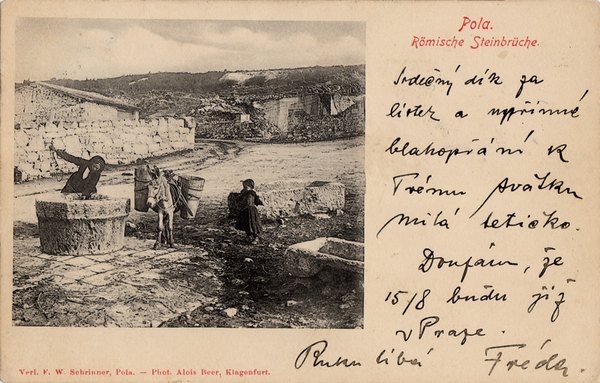 Pola.
Römische Steinbrüche.
Srdečný dík za
lístek a upřímné
blahopřání k
Trému svátku
milá tetičko.
Doufám, že
15/8 budu již
v Praze.
Ruku líbá Fréda.
Verl. F. W. Schrinner, Pola. — Phot. Alois Beer, Klagenfurt.